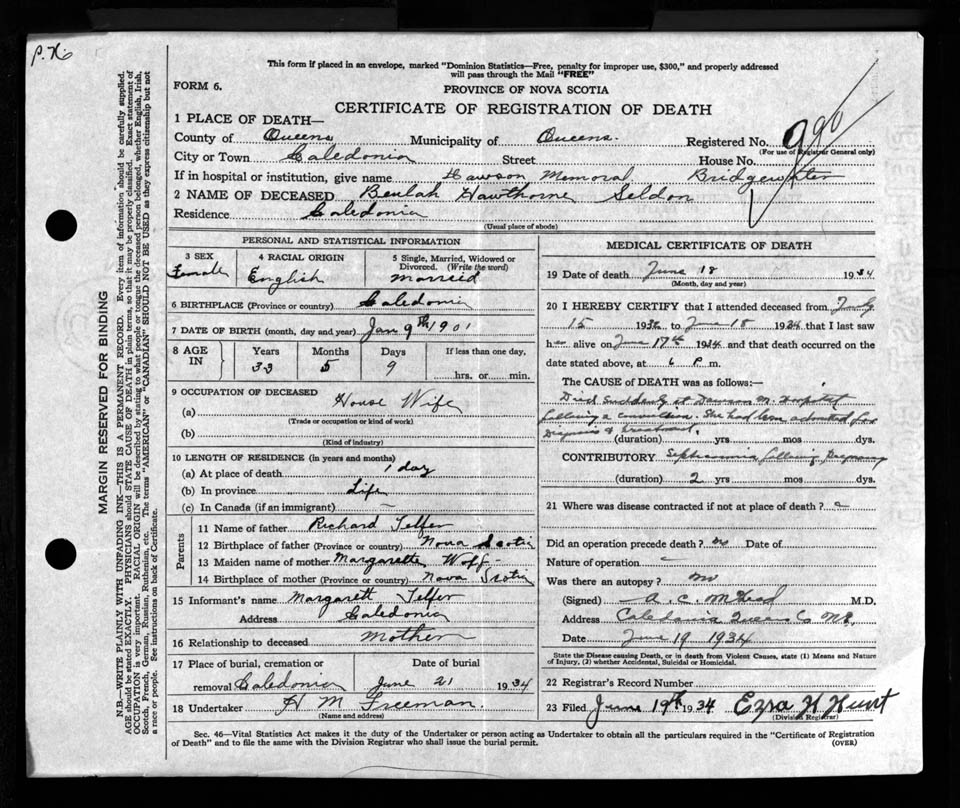 P. Xi
This form if placed in an envelope, marked "Dominion Statistics—Free, penalty for improper use, $300," and properly addressed
will pass through the Mail "FREE"
FORM 6.
PROVINCE OF NOVA SCOTIA
CERTIFICATE OF REGISTRATION OF DEATH
1 PLACE OF DEATH—
County of Queens Municipality of Queens. Registered No. 990
(For use of Registrar General only)
City or Town Caledonia Street House No.
If in hospital or institution, give name Dawson Memoral Bridgewater
2 NAME OF DECEASED Beulah Hawthorne Seldon
Residence Caledonia
(Usual place of abode)
MARGIN RESERVED FOR BINDING
N.B.—WRITE PLAINLY WITH UNFADING INK—THIS IS A PERMANENT RECORD. Every item of information should be carefully supplied.
AGE should be stated EXACTLY. PHYSICIANS should STATE CAUSE OF DEATH in plain terms, so that it may be properly classified. Exact statement of
OCCUPATION is very important. RACIAL ORIGIN will be described by stating to what people or tongue the deceased person belonged, whether English, Irish,
Scotch, French, German, Russian, Ruthenian, etc. The terms "AMERICAN" or "CANADIAN" SHOULD NOT BE USED as they express citizenship but not
a race or people. See instructions on back of Certificate.
PERSONAL AND STATISTICAL INFORMATION
3 SEX 4 RACIAL ORIGIN 5 Single, Married, Widowed or
Divorced. (Write the word)
Female English Married
6 BIRTHPLACE (Province or country) Caledonia
7 DATE OF BIRTH (month, day and year) Jan 9th 1901
8 AGE IN Years Months Days If less than one day,
33 5 9 hrs. or min.
9 OCCUPATION OF DECEASED
(a) House Wife
(Trade or occupation or kind of work)
(b)
(Kind of industry)
10 LENGTH OF RESIDENCE (in years and months)
(a) At place of death 1 day
(b) In province Life
(c) In Canada (if an immigrant) —
Parents
11 Name of father Richard Telfer
12 Birthplace of father (Province or country) Nova Scotia
13 Maiden name of mother Margarette Wolf
14 Birthplace of mother (Province or country) Nova Scotia
15 Informant's name Margarett Telfer
Address Caledonia
16 Relationship to deceased Mother
17 Place of burial, cremation or Date of burial
removal Caledonia June 21 1934
18 Undertaker H M Freeman.
(Name and address)
MEDICAL CERTIFICATE OF DEATH
19 Date of death June 18 1934
(Month, day and year)
20 I HEREBY CERTIFY that I attended deceased from
15 1932 to June 18 1934 that I last saw
her alive on June 17th 1934 and that death occurred on the
date stated above, at 6 P. m.
The CAUSE OF DEATH was as follows:—
Died suddenly at Dawson M. Hospital
following a convulsion. She had been admitted for
Diagnosis & treatment.
(duration) yrs. mos. dys.
CONTRIBUTORY following Pregnancy
(duration) 2 yrs. mos. dys.
21 Where was disease contracted if not at place of death?
Did an operation precede death? no Date of
Nature of operation —
Was there an autopsy? no
(Signed) A. C. M.D.
Address Caledonia Queens Co N.S.
Date June 19 1934
State the Disease causing Death, or in death from Violent Causes, state (1) Means and Nature
of Injury, (2) whether Accidental, Suicidal or Homicidal.
22 Registrar's Record Number
23 Filed June 19th 1934 Ezra H Hunt
(Division Registrar)
Sec. 46—Vital Statistics Act makes it the duty of the Undertaker or person acting as Undertaker to obtain all the particulars required in the "Certificate of Registration
of Death" and to file the same with the Division Registrar who shall issue the burial permit.
(OVER)